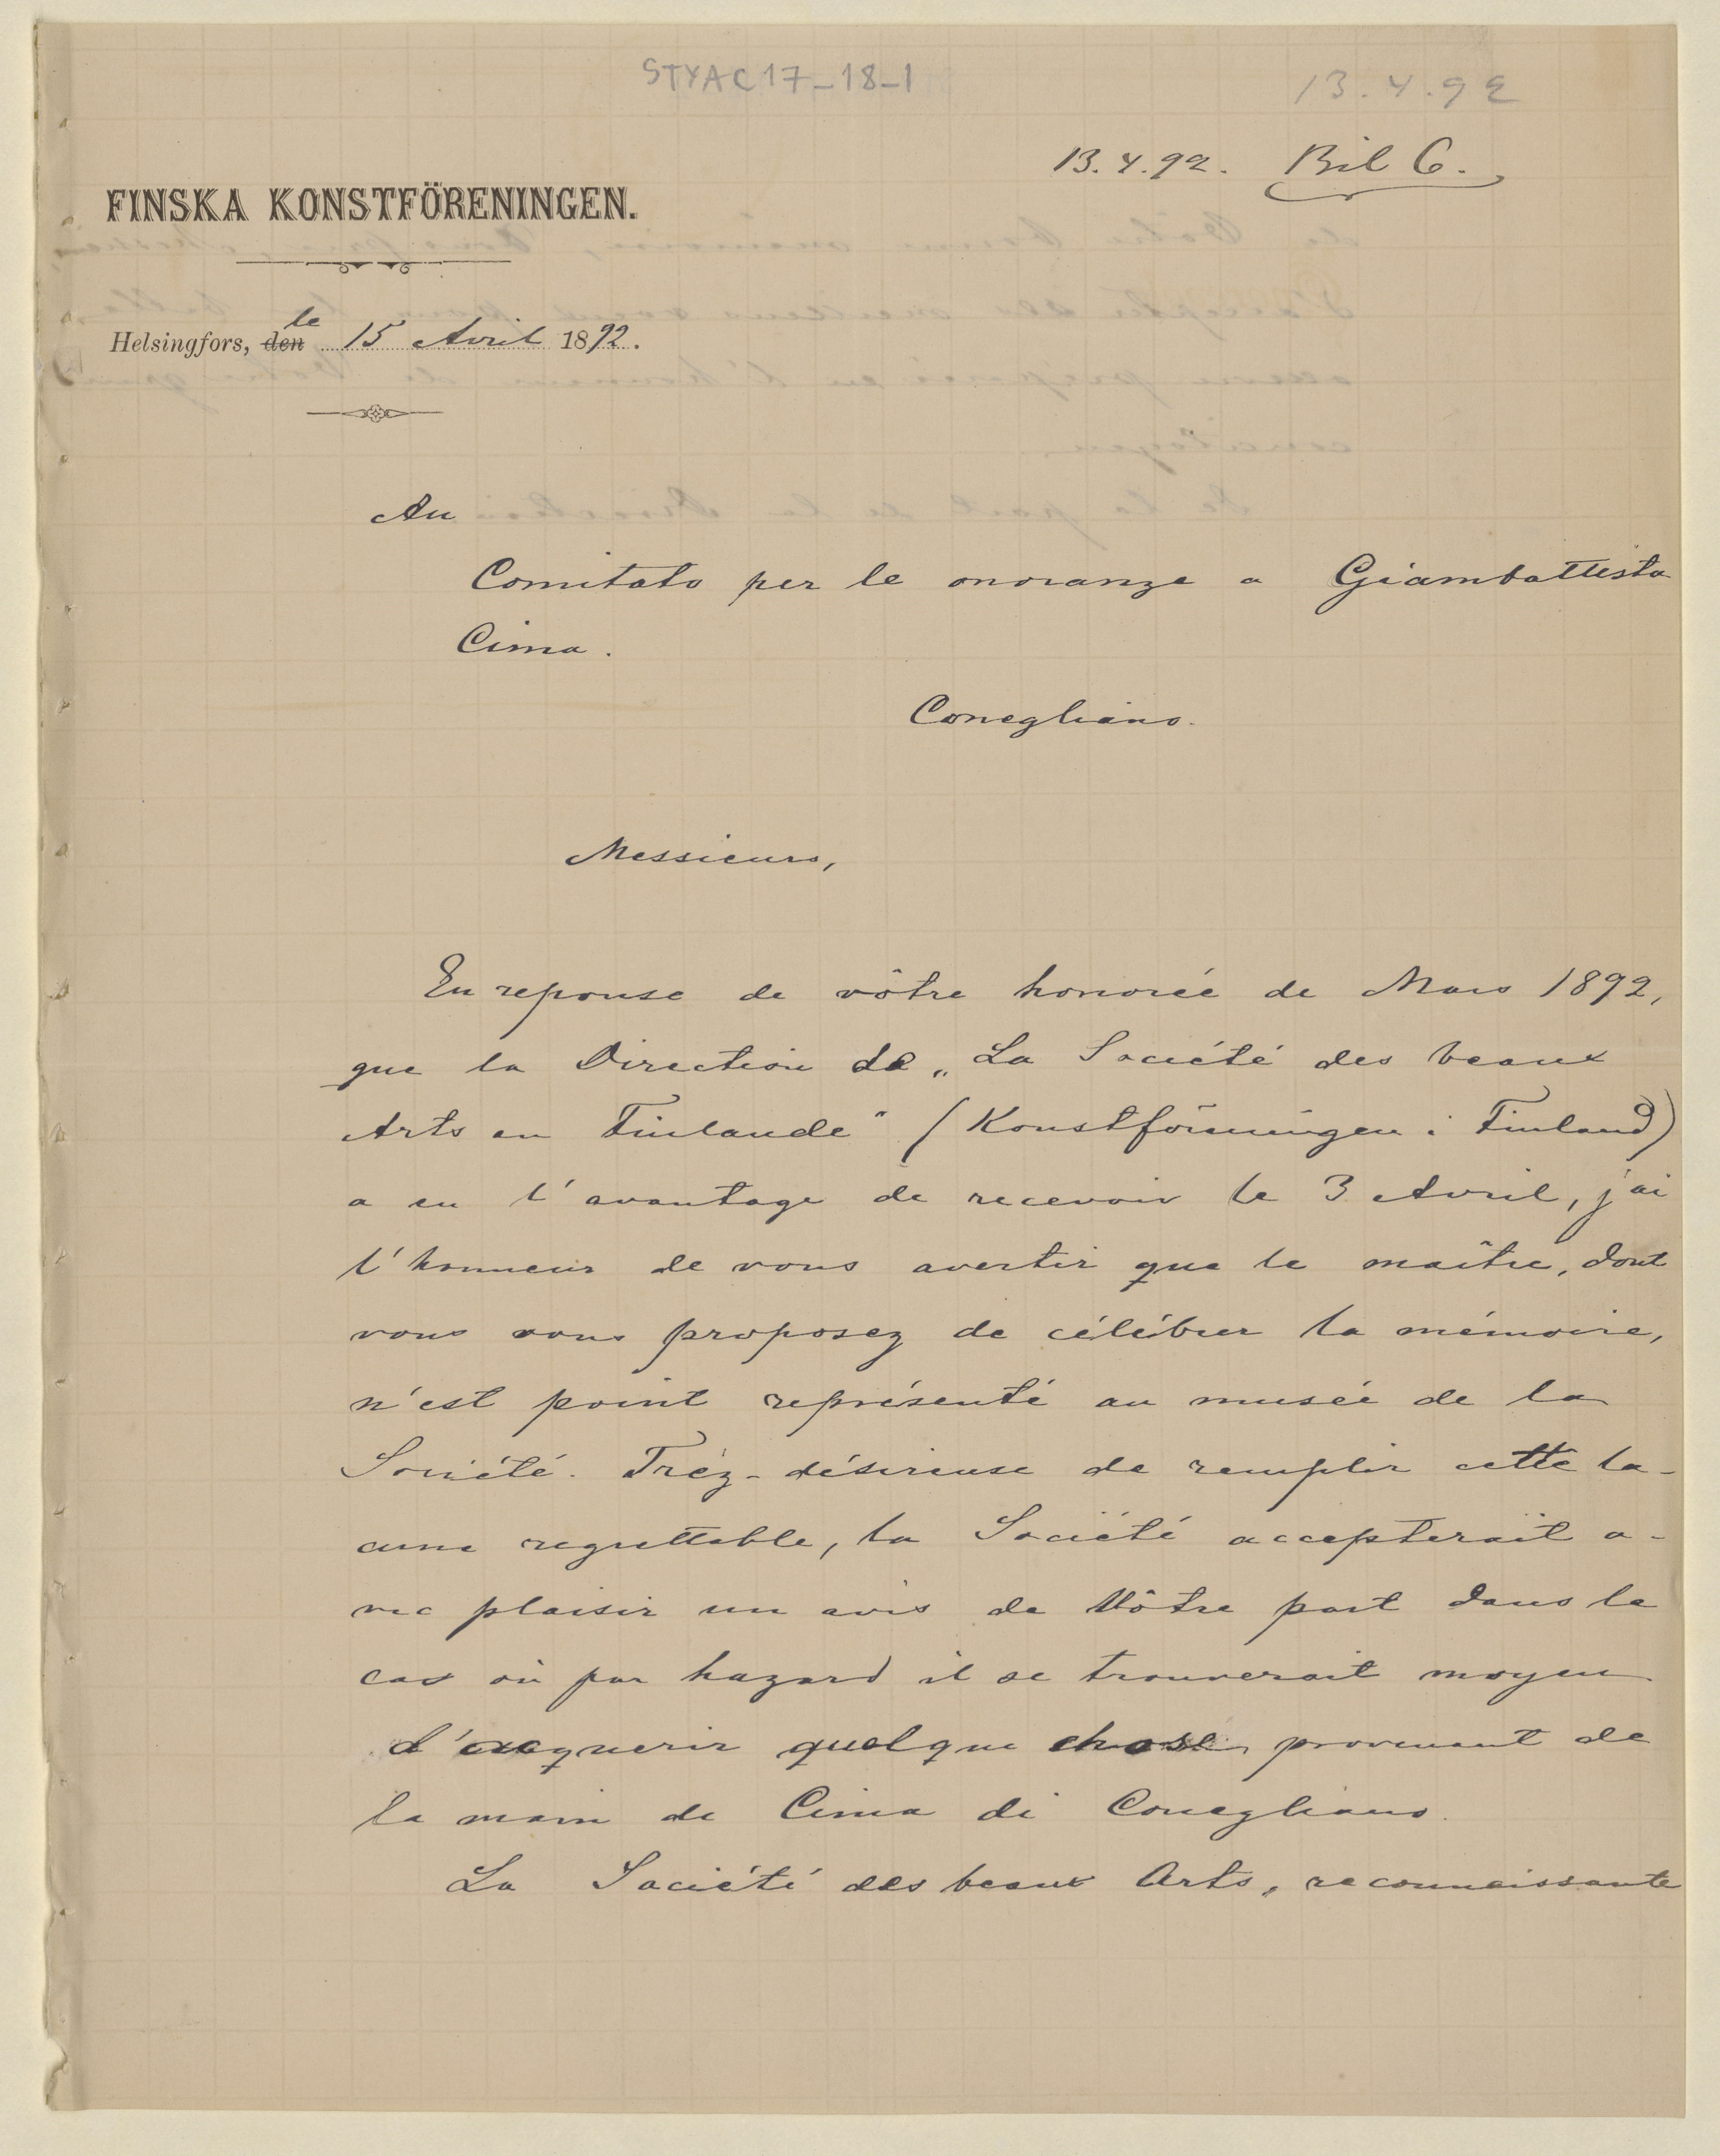 STYAC17-18-1
13.4.92
13.4.92. Bil 6.
FINSKA KONSTFÖRENINGEN.
Helsingfors, den le 15 Avril 1892.
Au
Comitato per le onoranze a Giambattista
Cima.
Conegliano.
Messieurs,
En reponse de vôtre honorée de Mars 1892,
que la Direction de „La Société des beaux
Arts en Finlande" (Konstföreningen i Finland)
a eu l'avantage de recevoir le 3 Avril, j'ai
l'honneur de vous avertir que le maître, dont
vous vous proposez de célébrer la mémoire,
n'est point représenté au musée de la
Société. Tréz-désireuse de remplir cette la-
cune regrettable, la Société accepterait a-
vec plaisir un avis de Vôtre part dans le
cas où par hazard il se trouverait moyen
d'acquerir quelque chose provenant de
la main de Cima di Conegliano.
La Société des beaux Arts, reconnaissante